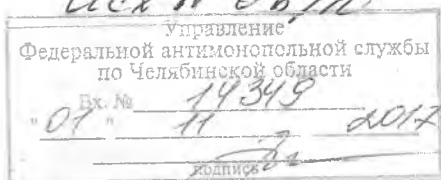 Исх №
Управление
Федеральной антимонопольной службы
по Челябинской области
Вх. № 14349
"01" 11 2017
подпись